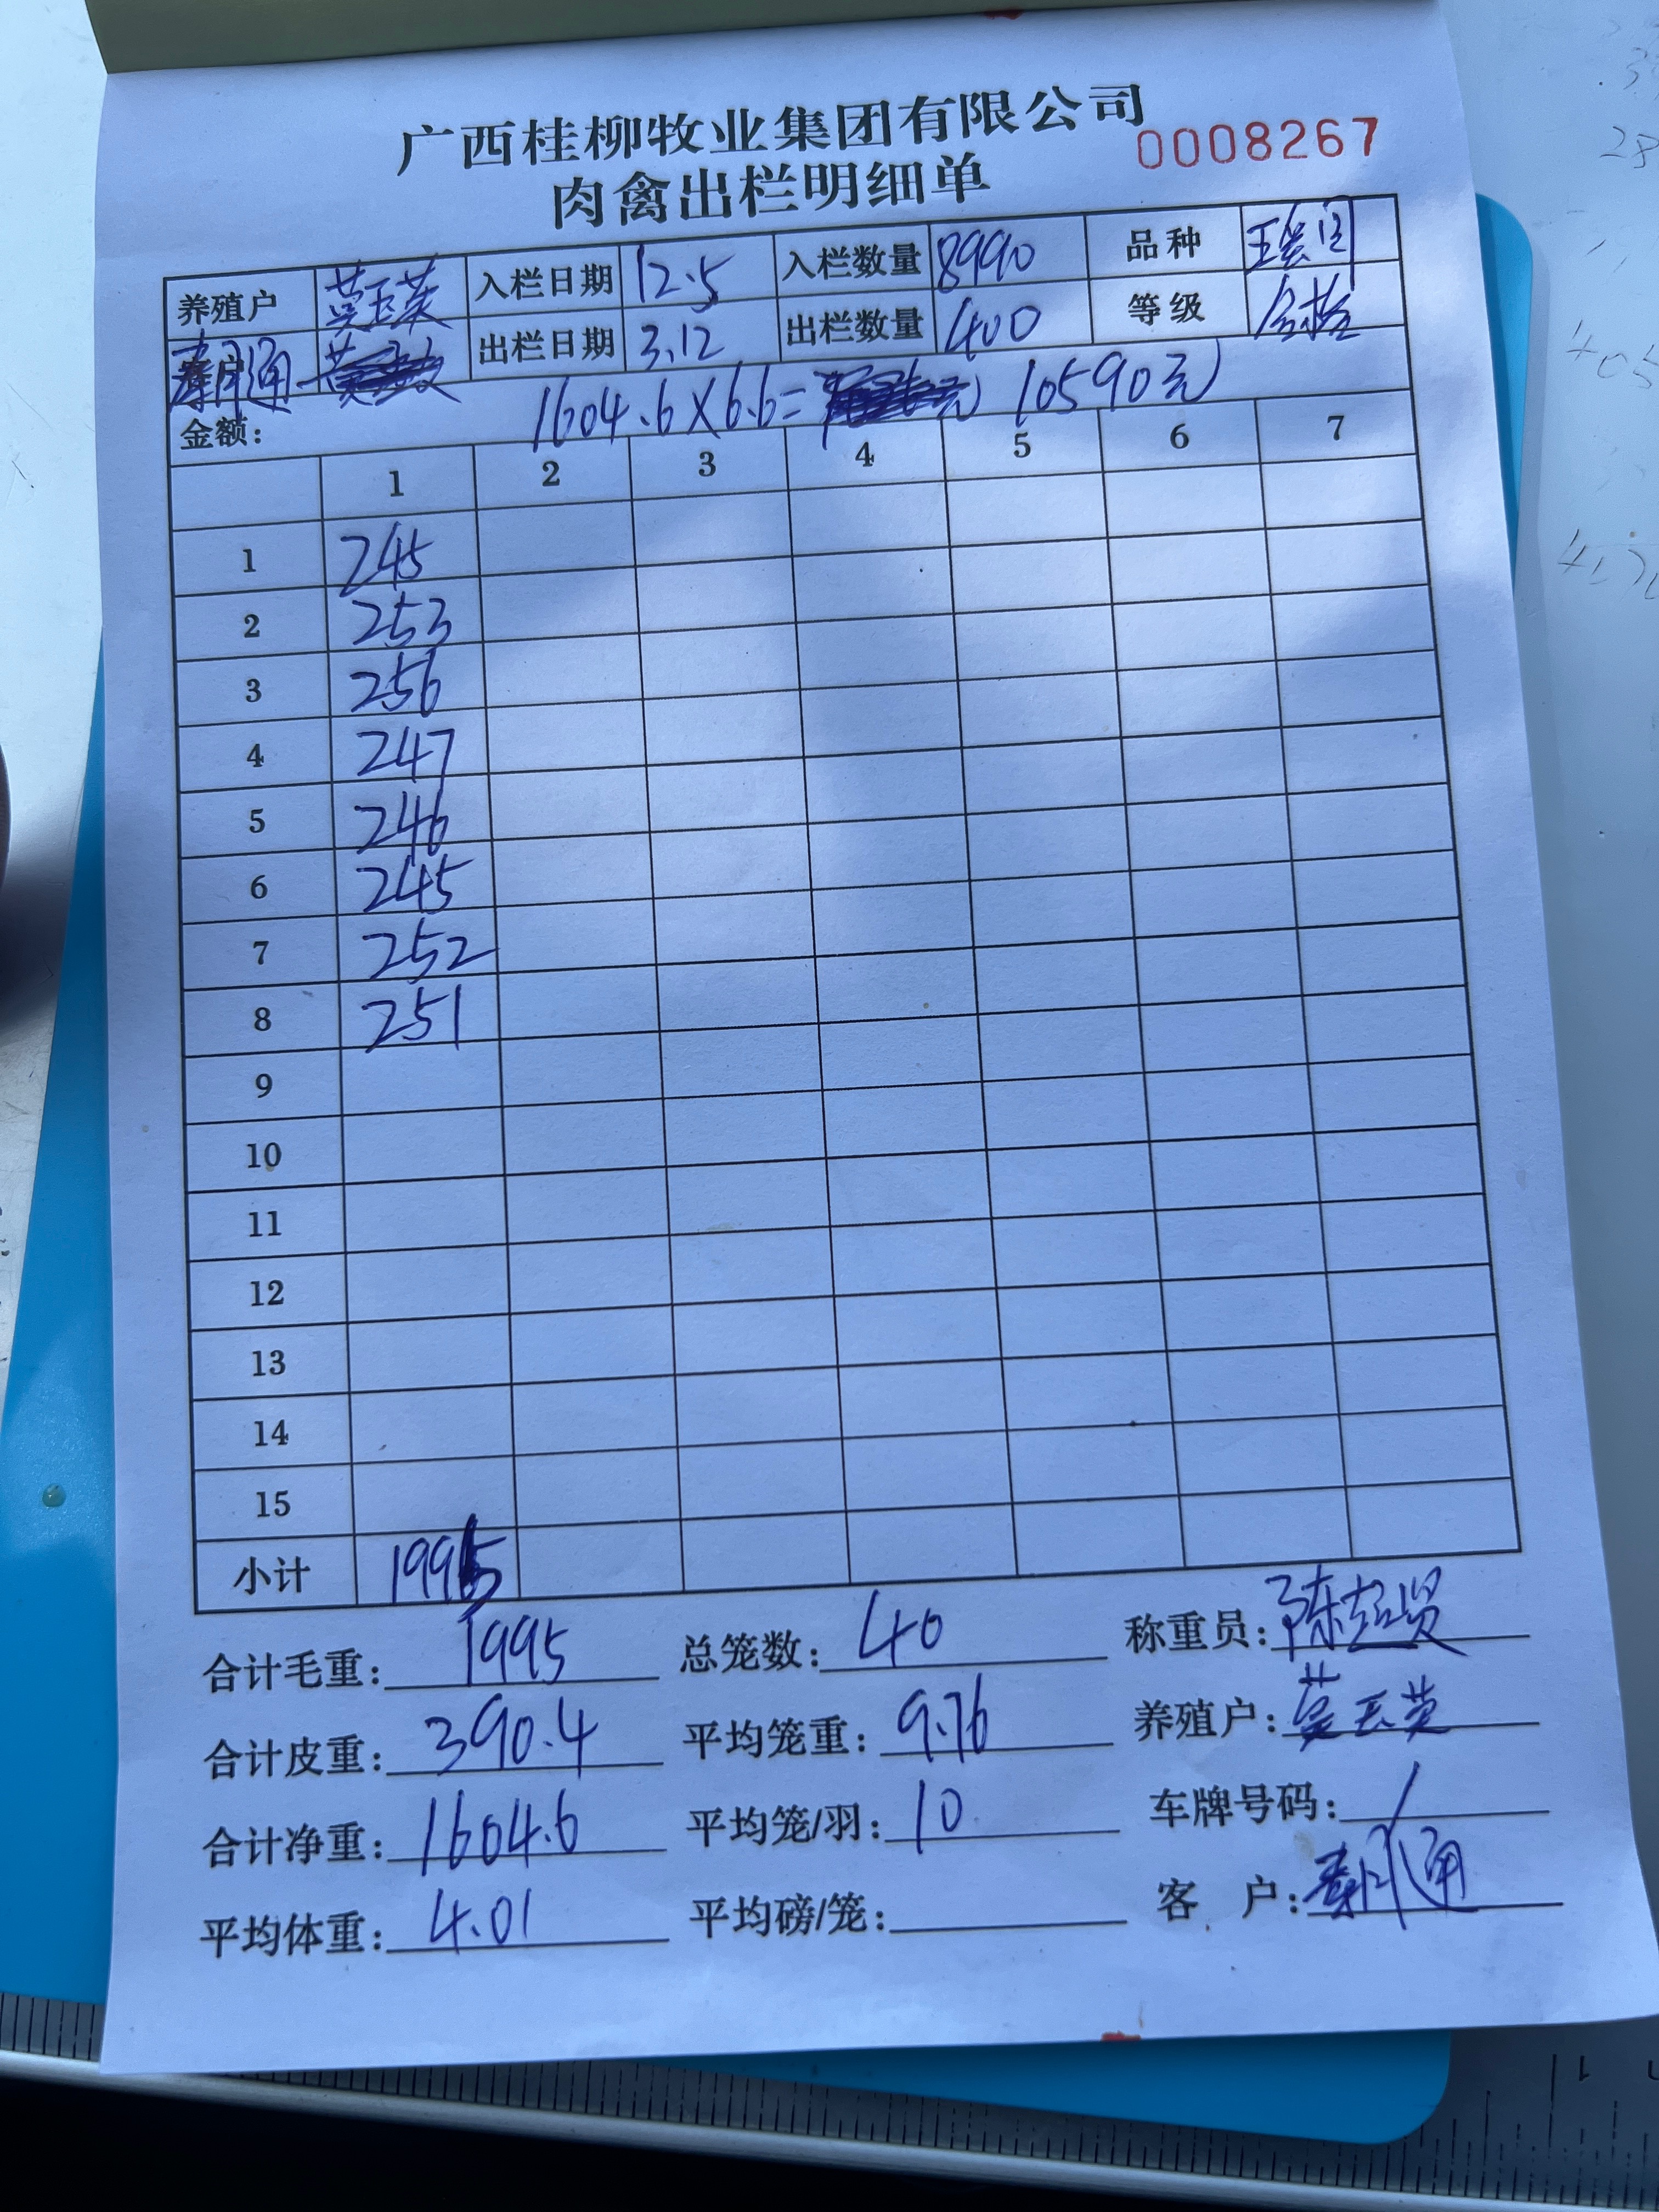 广西桂柳牧业集团有限公司
0008267
肉禽出栏明细单
养殖户 莫玉英 入栏日期 12.5 入栏数量 8990 品种
通 出栏日期 3.12 出栏数量 400 等级 合格
金额: 1604.6×6.6= 10590元
1 2 3 4 5 6 7
1 245
2 253
3 256
4 247
5 246
6 245
7 252
8 251
9
10
11
12
13
14
15
小计 1995
合计毛重: 1995 总笼数: 40 称重员: 陈超贤
合计皮重: 390.4 平均笼重: 9.76 养殖户: 莫玉英
合计净重: 1604.6 平均笼/羽: 10 车牌号码: /
平均体重: 4.01 平均磅/笼: 客 户: 通